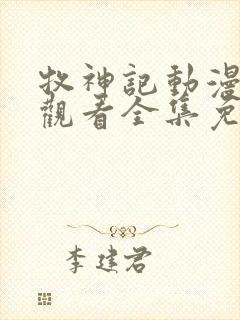 牧神記動漫
觀看全集免
李建君